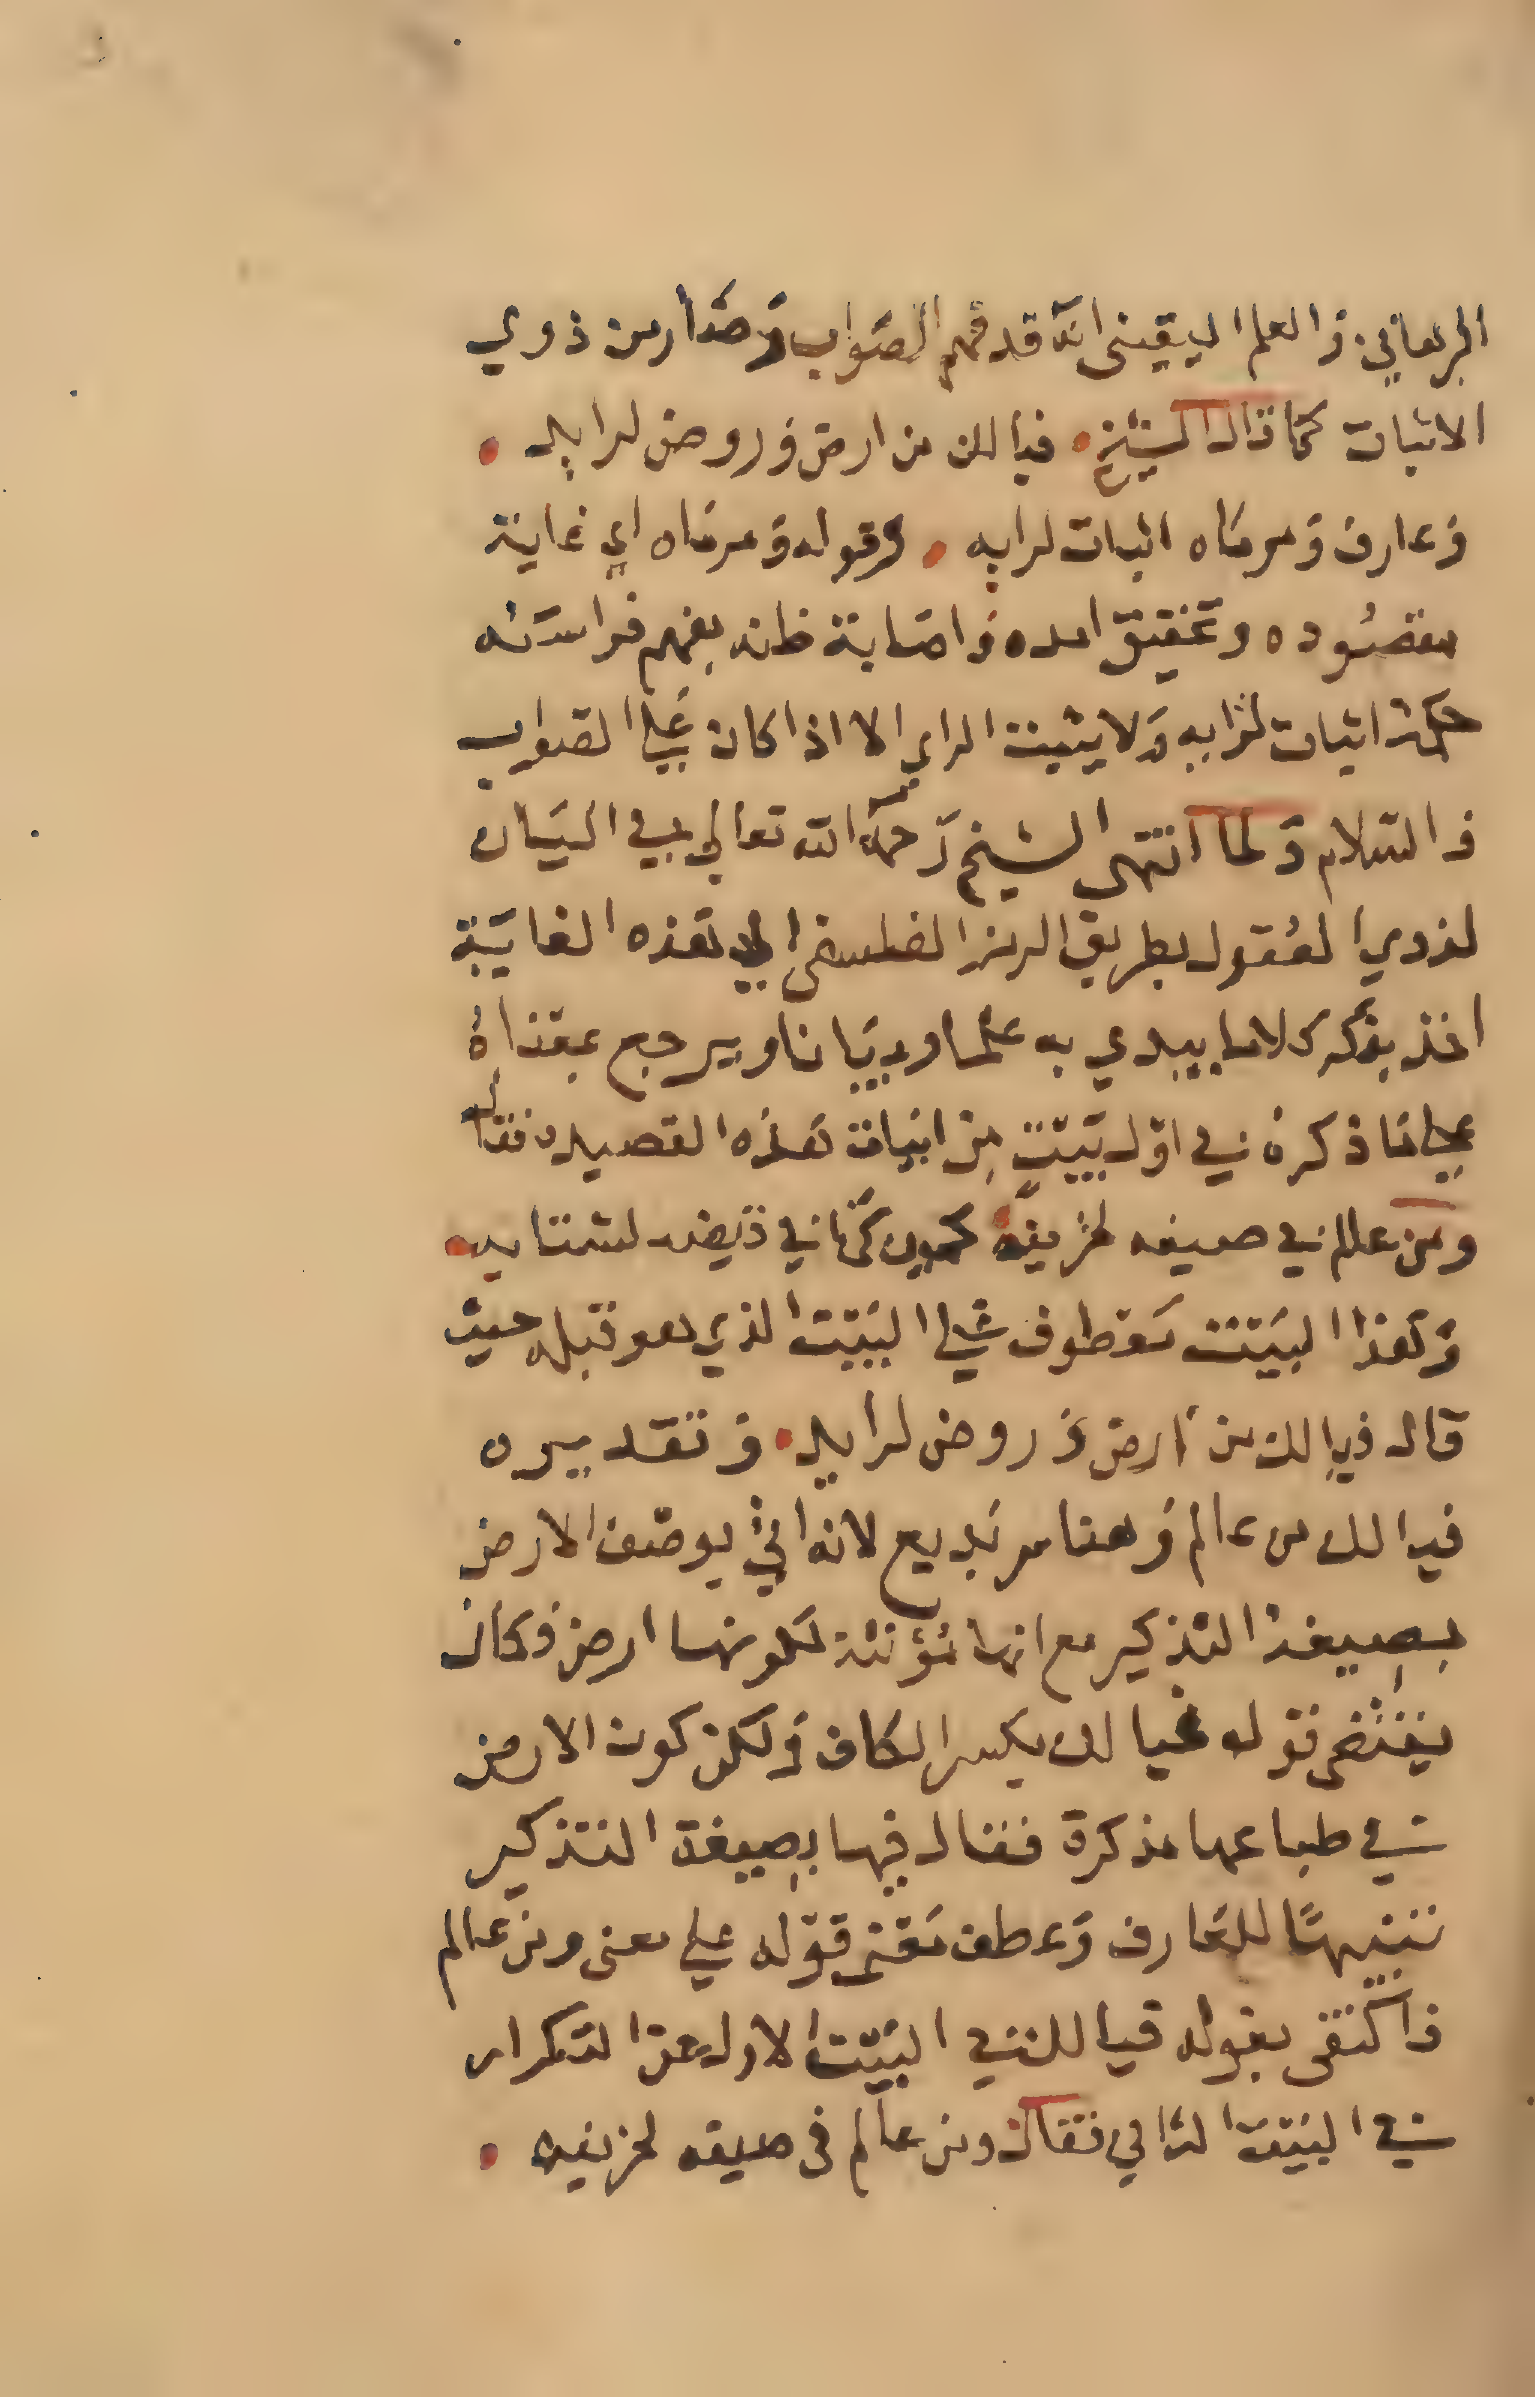 البرهاني والعلم اليقيني انه قد فهم الصواب وصار من ذوي
الاثبات كما قال الشيخ فيا لك من ارض وروض لرايد
وعارف ومرماه اثبات لرايه وقوله ومرماه اي غاية
مقصوده وتحقيق امده واصابة ظنه بفهم فراسته
حكمة اثبات لرايه ولا يثبت الراي الا اذا كان علي الصواب
والسلام ولما انتهى الشيخ رحمه الله تعالي في البيان
لذوي العقول بطريق الرمز الفلسفي الي هذه الغاية
اخذ يذكر كلاما يبدي به علما وبيانا ويرجع بمعناه
علي ما ذكره في اول بيت من ابيات هذه القصيده فقال
ومن عالم في صيفه لخريفه كمين كما في قيضه لشتايه
وهذا البيت معطوف علي البيت الذي هو قبله حيث
قال فيا لك من ارض وروض لرايد وتقديره
فيا لك من عالم وهنا سر بديع لانه اتي بوصف الارض
بصيغة التذكير مع انها مؤنثة لكونها ارض وكان
يقتضي قوله فيا لك بكسر الكاف ولكن كون الارض
في طباعها مذكرة فقال فيها بصيغة التذكير
تنبيها للعارف وعطف معنى قوله علي معنى ومن عالم
واكتفى بقوله فيا لك في البيت الاول عن التكرار
في البيت التالي فقال ومن عالم في صيفه لخريفه